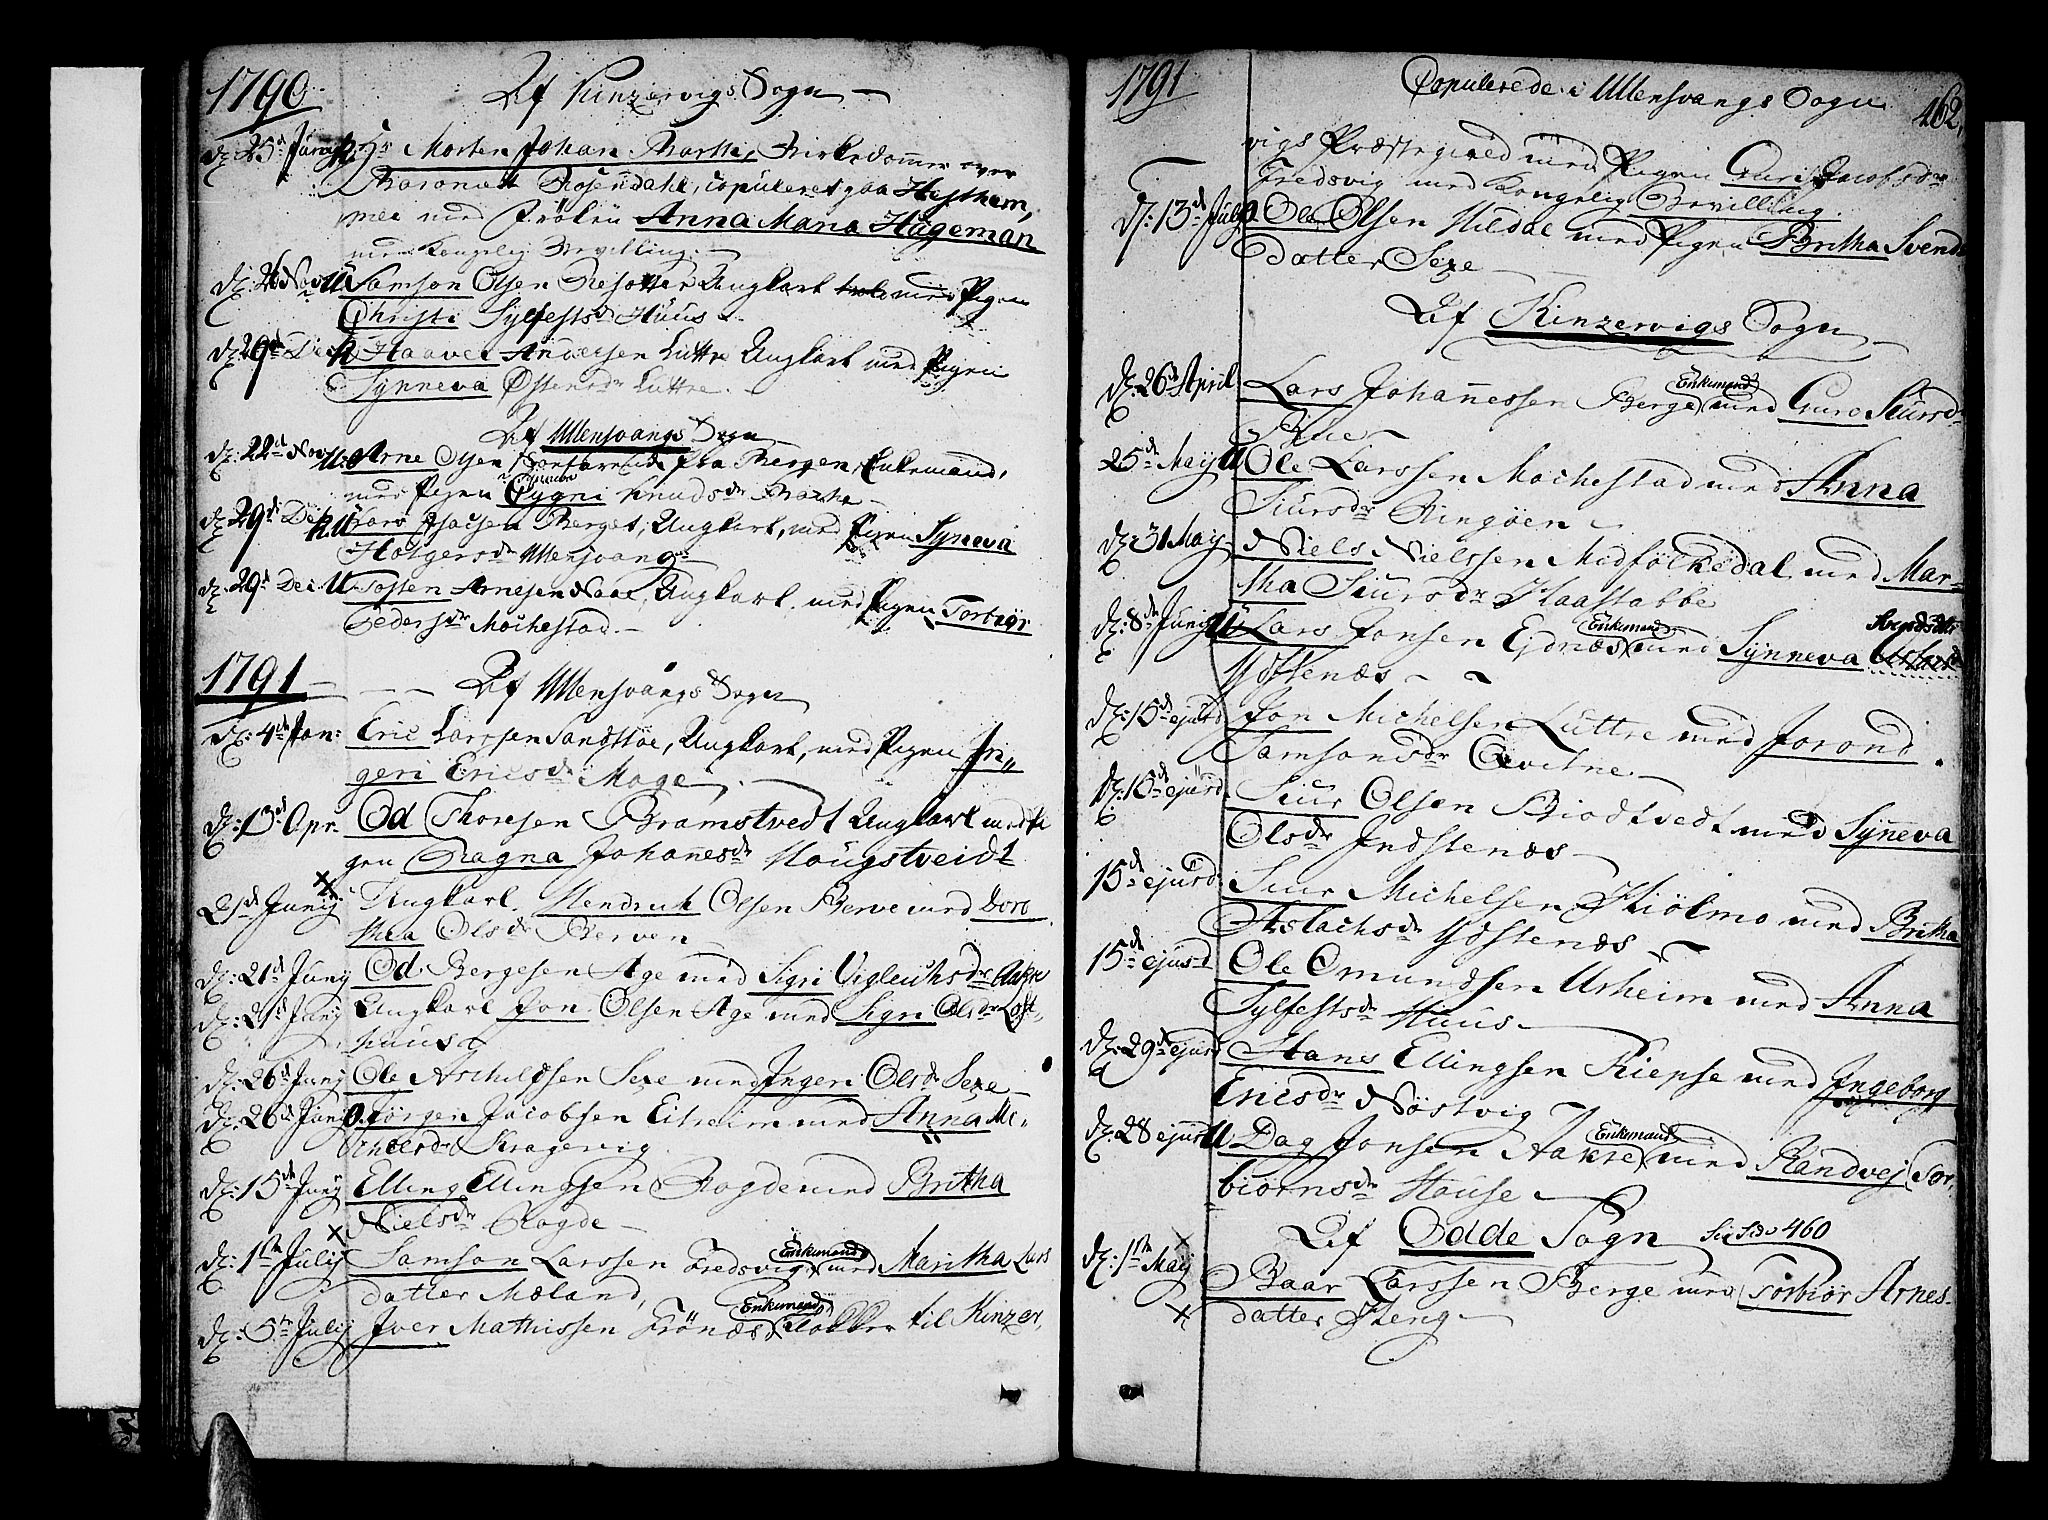 1790 Af Kinzervigs Sogn
d: 25d Junij Hr Morten Johan Barth, Birkedommer over
Baroniet Rosendahl, copuleret paa Hestham,
mer med Frøken Anna Maria Hageman
med Kongelig Bevilling.
d: 26 Nov: Samson Olsen Ungkarl med Pigen
Christi Sylfestsdr Huus
d: 29d Dec Haaver Andersen Luttre Ungkarl med Pigen
Synneva Østensdr Luttre.
Af Ullensvangs Sogn
d: 22d Nov: Arne Olsen fra Bergen, Enkemand,
med Pigen Gygni Knudsdr
d: 29d Dec: Lars Isacsen Berget, Ungkarl, med Pigen Syneva
Holgersdr Ullensvang
d: 29d Dec: Tosten Arnesen Naae, Ungkarl, med Pigen Torbiør
Pedersdr Mochestad.
1791 Af Ullensvangs Sogn
d: 4de Jan: Eric Larssen Sandstøe, Ungkarl, med Pigen In,,
geri Ericsdr Mage
d: 13d Apr. Od Thoresen Bramstvedt Ungkarl med Pi
gen Ragna Johannesdr Hougstveidt
21d Junij Ungkarl Hendrich Olsen Berve med Doro
thea Olsdr Berven
d: 21d Junij Od Bergesen Age med Sigri Vigleichsdr Aakre
d: 21d Junij Ungkarl Jon Olsen Age med Sigri Olsdr Loft-
huus
d: 26d Junij Ole Aschildsen Sexe med Ingeri Olsdr Sexe
d: 26d Junij Jørgen Jacobsen Eitheim med Anna Mi-
chelsdr Kragevig
d: 15d Junij Elling Ellingsen Rogde med Britha
Nielsdr Rogde
d: 1ste Julij Samson Larssen Fredsvig Enkemand med Maritha Lars
datter Mæland,
d: 5te Julij Iver Mathissen Frönæs Enkemand Klokker til Kinzer
1791 Copulerede i Ullensvangs Sogn 462,
vigs Præstegield med Pigen Guri Jacobsdr
Fredsvig med Kongelig Bevilling.
d: 13d Julij Ole Olsen Hildal med Pigen Britha Svends
datter Sexe
Af Kinzervigs Sogn
d: 26d April Lars Johannessen Berge Enkemand med Guro Siursdr
Bue
25d Maij Ole Larssen Mochestad med Anna
Siursdr Ringøen
d: 31 Maij Niels Nielssen Midfolkedal med Mar-
tha Siursdr Haastabbe
d: 8de Junij Lars Jonsen Ejdnæs Enkemand med Synneva
Ydstenæs
d: 15d ejusd Jon Michelsen Luttre med Jorond
Samsonsdr Qvitne
d: 15d ejusd. Siur Olsen Biodtvedt med Syneva
Olsdr Indstenæs
15d ejusd Siur Michelsen Kiölmo med Britha
Aslachsdr Ydstenæs
15d ejusd Ole Omundsen Urheim med Anna
Sylfestsdr Huus
d: 29d ejusd Hans Ellingsen Kiepse med Ingeborg
Ericsdr Nöstvig
d: 28 ejusd Dag Jonsen Aakre Enkemand med Randvej Tor,
biörnsdr House
Af Odde Sogn See Side 460
d: 1ste Maij Baar Larssen Berge med Torbiör Arnes-
datter Eteng